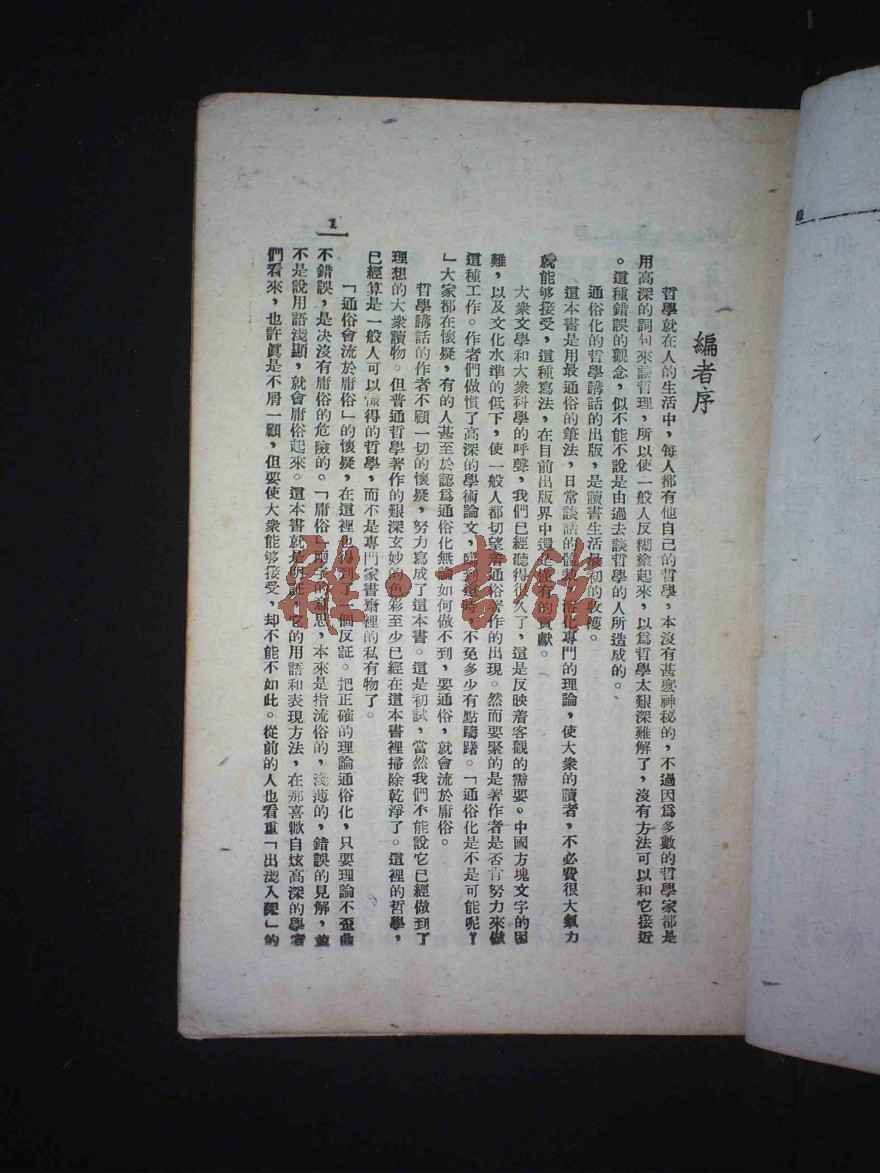 編者序
哲學就在人的生活中，每人都有他自己的哲學，本沒有甚麼神秘的，不過因爲多數的哲學家都是
用高深的詞句來談哲理，所以使一般人反糊塗起來，以爲哲學太艱深難解了，沒有方法可以和它接近
。這種錯誤的觀念，似不能不說是由過去談哲學的人所造成的。
通俗化的哲學講話的出版，是讀書生活最初的收穫。
這本書是用最通俗的筆法，日常談話的體裁，溶化專門的理論，使大衆的讀者，不必費很大氣力
就能够接受，這種寫法，在目前出版界中還是僅有的貢獻。
大衆文學和大衆科學的呼聲，我們已經聽得很久了，這是反映着客觀的需要。中國方塊文字的困
難，以及文化水準的低下，使一般人都切望着通俗著作的出現。然而要緊的是著作者是否肯努力來做
這種工作。作者們做慣了高深的學術論文，臨到這時，不免多少有點躊躇。「通俗化是不是可能呢？
」大家都在懷疑，有的人甚至於認爲通俗化無論如何做不到，要通俗，就會流於庸俗。
哲學講話的作者不顧一切的懷疑，努力寫成了這本書。這是初試，當然我們不能說它已經做到了
理想的大衆讀物。但普通哲學著作的艱深玄妙的色彩至少已經在這本書裡掃除乾淨了。這裡的哲學，
已經算是一般人可以懂得的哲學，而不是專門家書齋裡的私有物了。
「通俗會流於庸俗」的懷疑，在這裡也得到了一個反証。把正確的理論通俗化，只要理論不歪曲
不錯誤，是決沒有庸俗的危險的。「庸俗」兩字的意思，本來是指流俗的，淺薄的，錯誤的見解，並
不是說用語淺顯，就會庸俗起來。這本書就是明証，它的用語和表現方法，在那喜歡自炫高深的學者
們看來，也許眞是不屑一顧，但要使大衆能够接受，却不能不如此。從前的人也看重「出淺入深」的
1
雅·書館